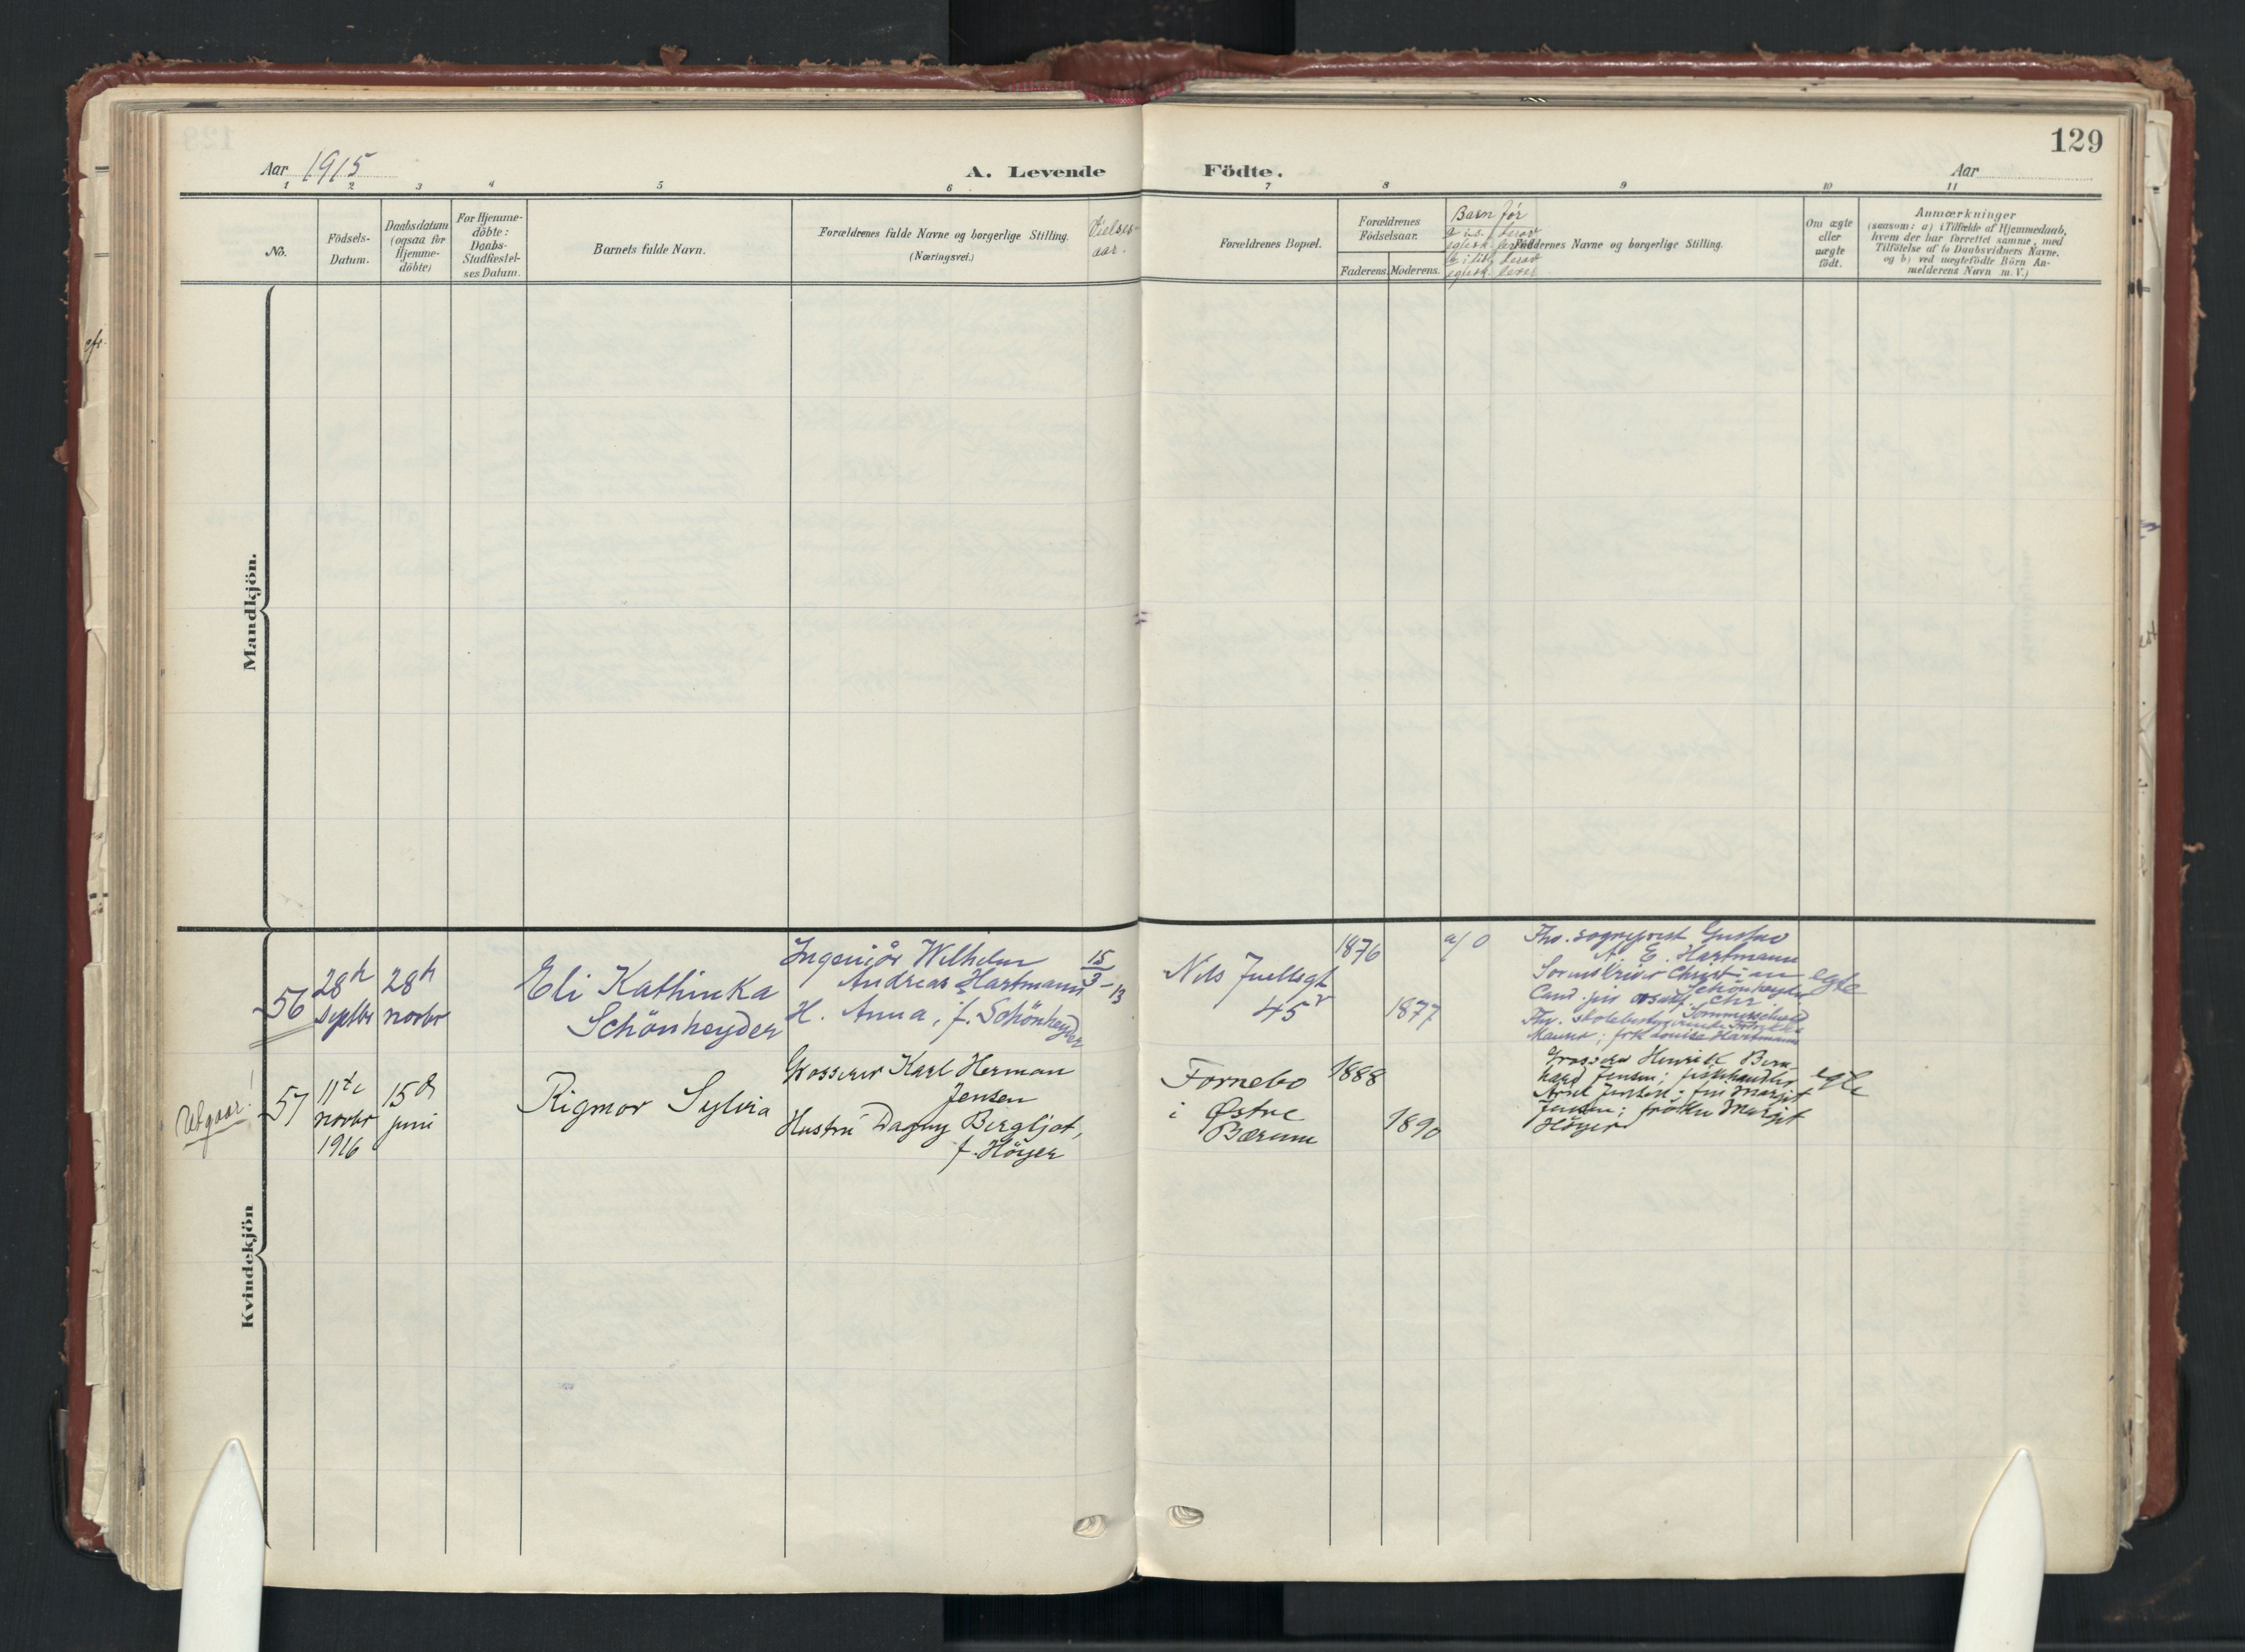 129
Aar 1915
A. Levende Födte.
Aar
1 2 3 4 5 6 7 8 9 10 11
No.
Födsels-
Datum.
Daabsdatum
(ogsaa for
Hjemme-
döbte)
For Hjemme-
döbte:
Daabs-
Stadfæstel-
ses Datum.
Barnets fulde Navn.
Forældrenes fulde Navne og borgerlige Stilling.
(Næringsvei.)
Vielses-
aar.
Forældrenes Bopæl.
Forældrenes
Födselsaar.
Faderens. Moderens.
Barn før
Faddernes Navne og borgerlige Stilling.
Om ægte
eller
uægte
födt.
Anmærkninger
(saasom: a) i Tilfælde af Hjemmedaab,
hvem der har forrettet samme, med
Tilföielse af to Daabsvidners Navne,
og b) ved uægtefödte Börn An-
melderens Navn m. V.)
Mandkjön.
Kvindekjön
56
28h
Septbr
28h
novbr
Eli Kathinka
Schönheyder
Ingeniör Wilhelm
Andreas Hartmann
H. Anna, f. Schönheyder
15/3-13
Nils Juellsgt
45
1876
1877
a/0
Fhv. sogneprest Gustav
A. E. Hartmann
Sorenskriver Christian
Schönheyder
Cand. jur Chr.
Sommerschield
Fhv.
frk Louise Hartmann
egte
Utgaar!
57
11te
novbr
1916
15d
juni
Rigmor Sylvia
Grosserer Karl Herman
Jensen
Hustru Dagny Bergljot,
f. Höyer
Fornebo
i Østre
Bærum
1888
1890
Grosserer Henrik Bern-
hard Jensen; fiskehandler
Arne Jensen; fru Margit
Jensen; fröken Margit
Höyer
egte